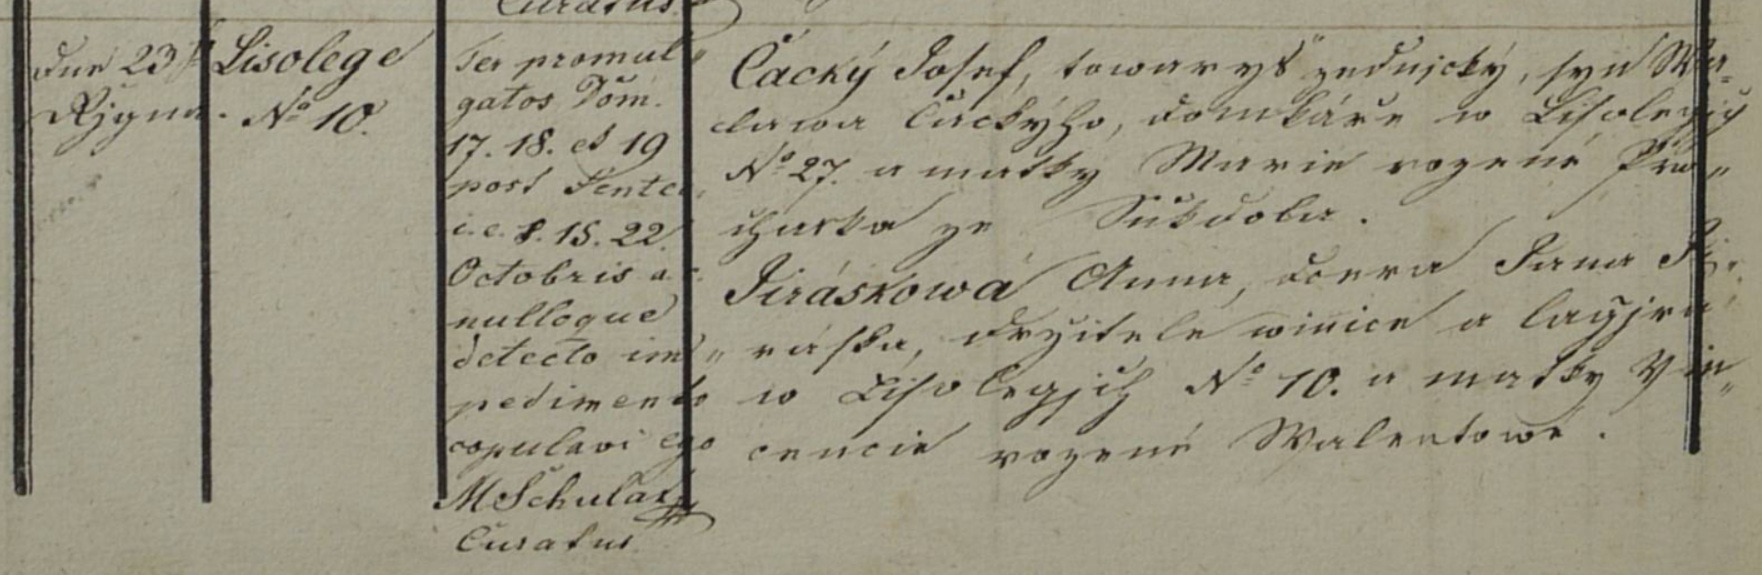 Curatus
Dne 23ho
Řjgna.
Lisolege
No 10.
Ter promul„
gatos Dom.
17. 18. et 19
post Pente„
i. e. 8. 15. 22.
Octobris a. c.
nulloque
detecto im„
pedimento
copulavi ego
MSchulaz
Curatus
Čacký Josef, towaryš zednický, syn Wa„
clawa Čackýho, domkáře w Lisolegjch
No 27. a matky Marie rozené Pro„
charka ze Sukdola.
Jiráskowá Anna, dcera Jana Ji„
ráska, držitele winice a lagjra
w Lisolegjch No 10. a matky Vin„
cencie rozené Walentowe.